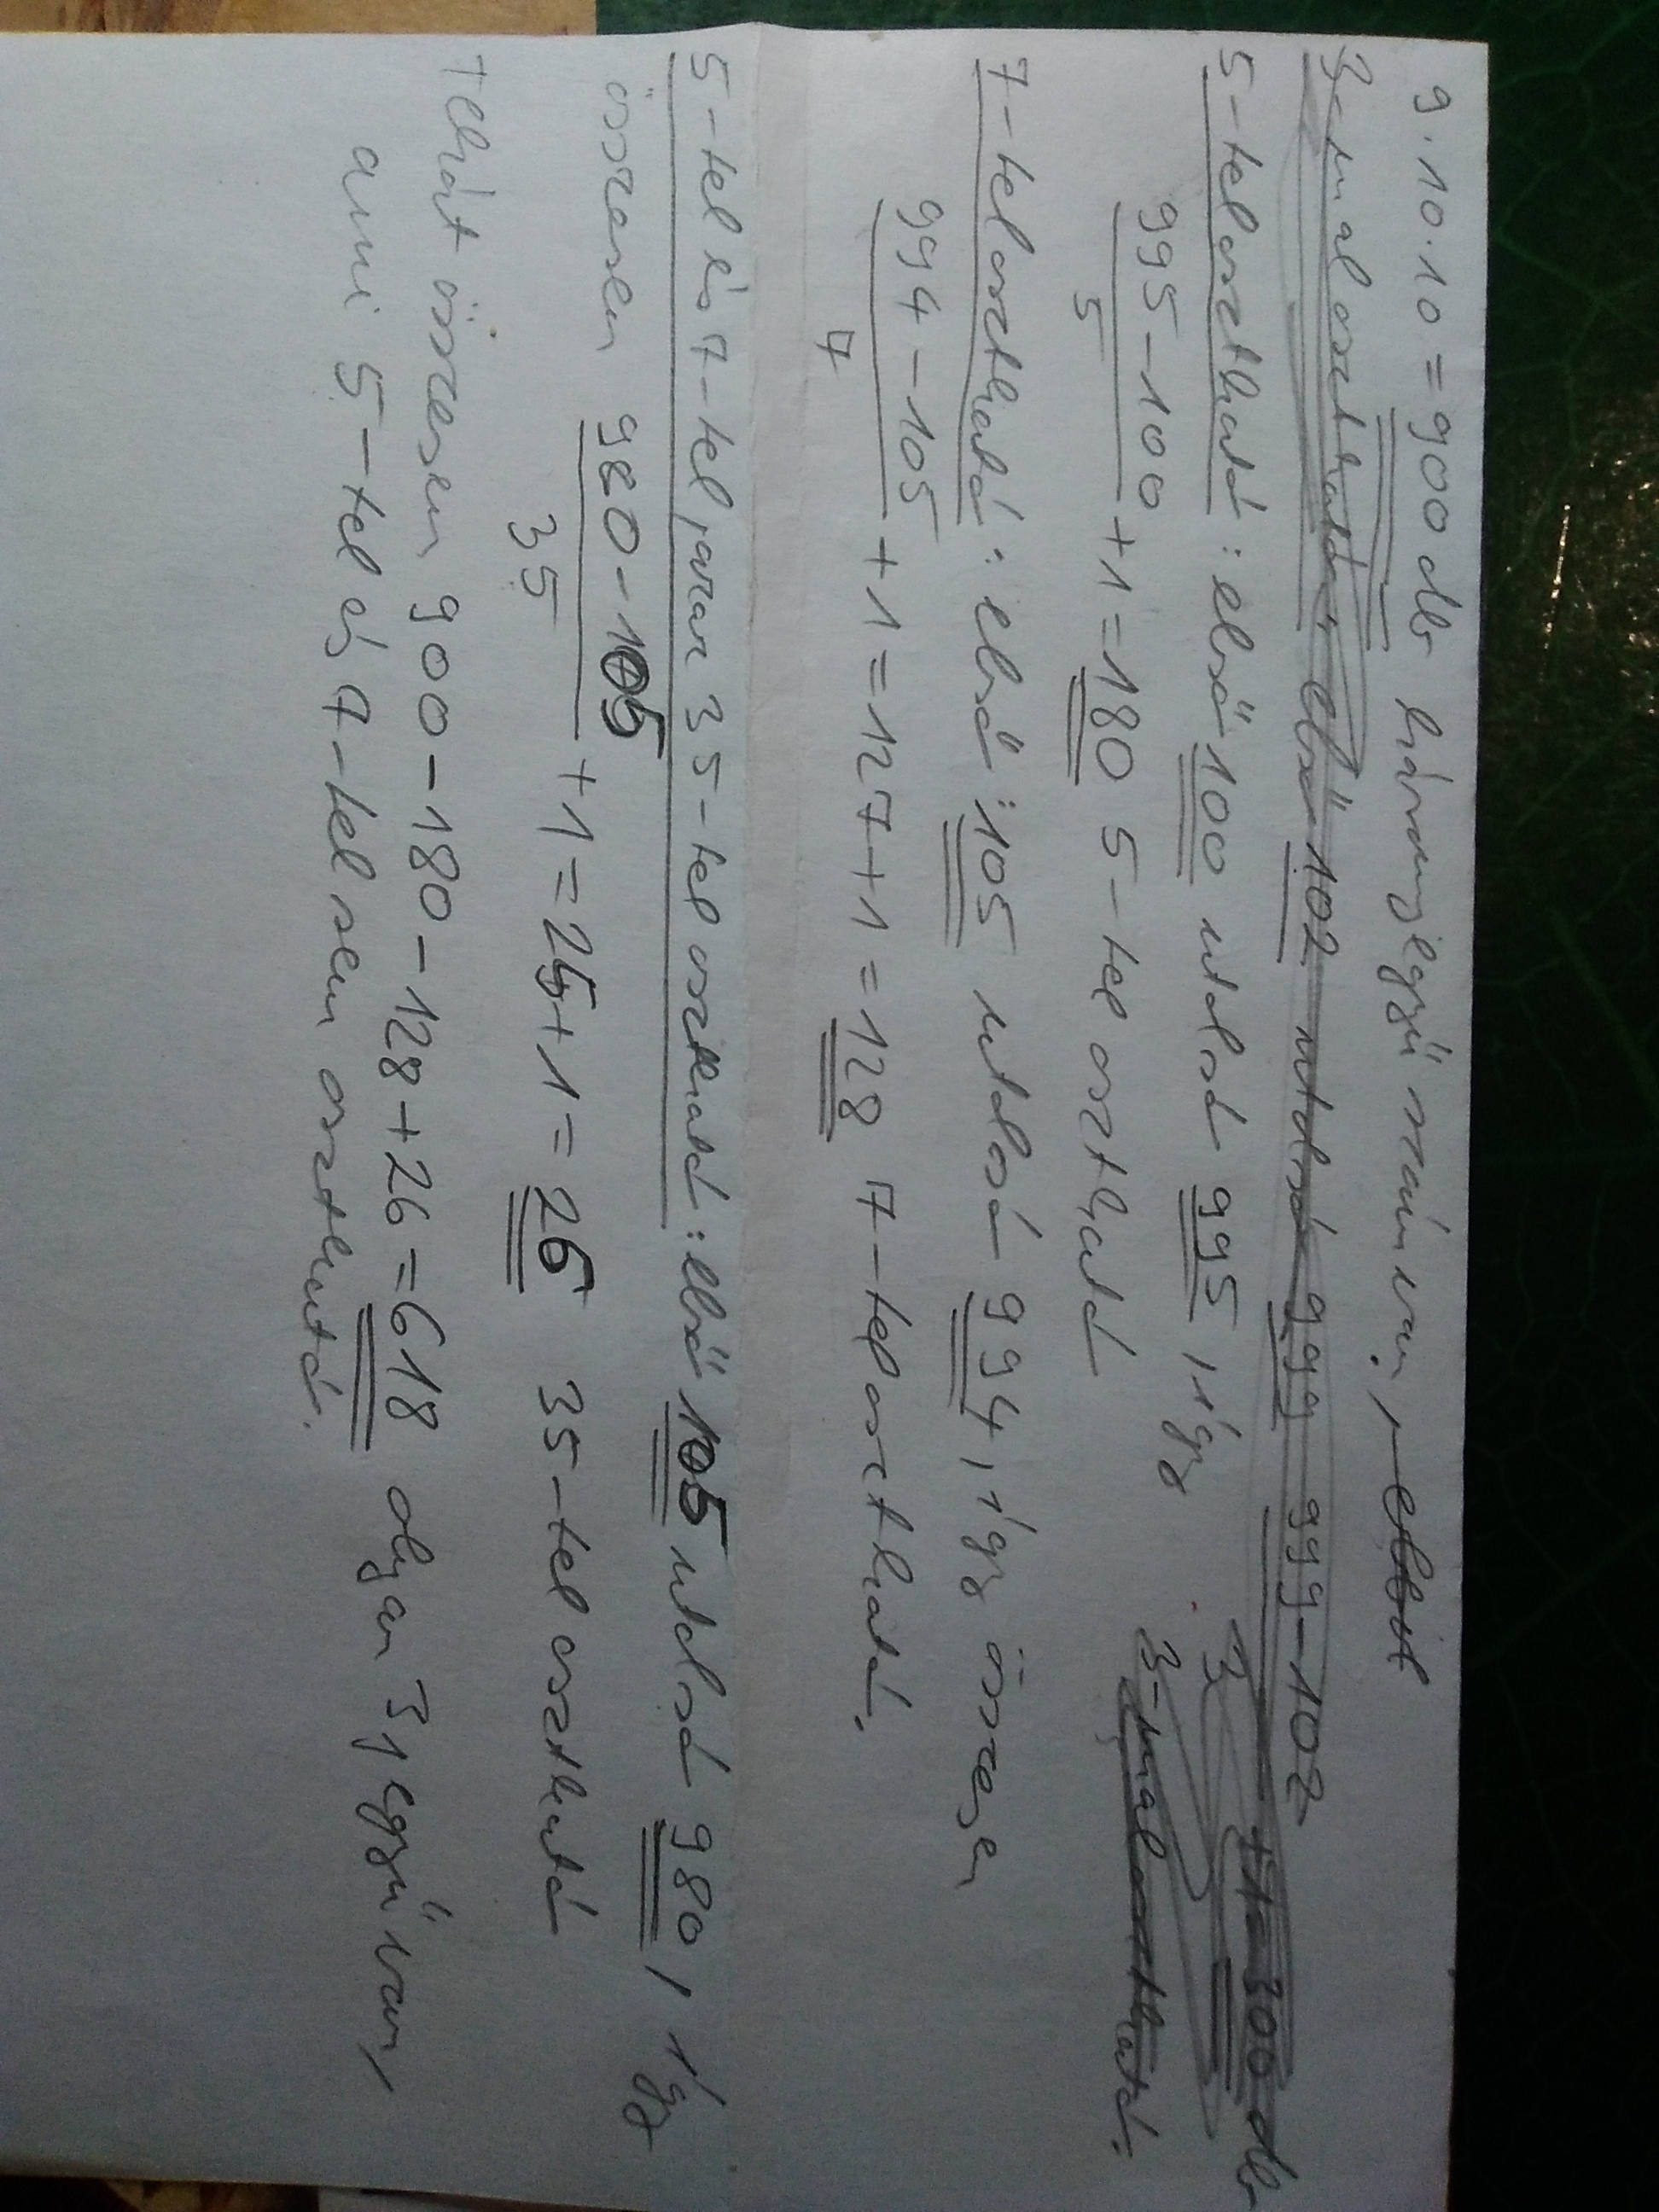 9·10·10=900 db háromjegyű szám van, ebből
3-mal osztható: első 102 utolsó 999 999-102
3 +1=300 db
3-mal osztható.
5-tel osztható: első 100 utolsó 995, így
995-100
5 +1=180 5-tel osztható
7-tel osztható: első: 105 utolsó 994, így összesen
994-105
7 +1=127+1=128 7-tel osztható.
5-tel és 7-tel, azaz 35-tel osztható: első 105 utolsó 980, így
összesen 980-105
35 +1=25+1=26 35-tel osztható
Tehát összesen 900-180-128+26=618 olyan 3 jegyű van,
ami 5-tel és 7-tel sem osztható.